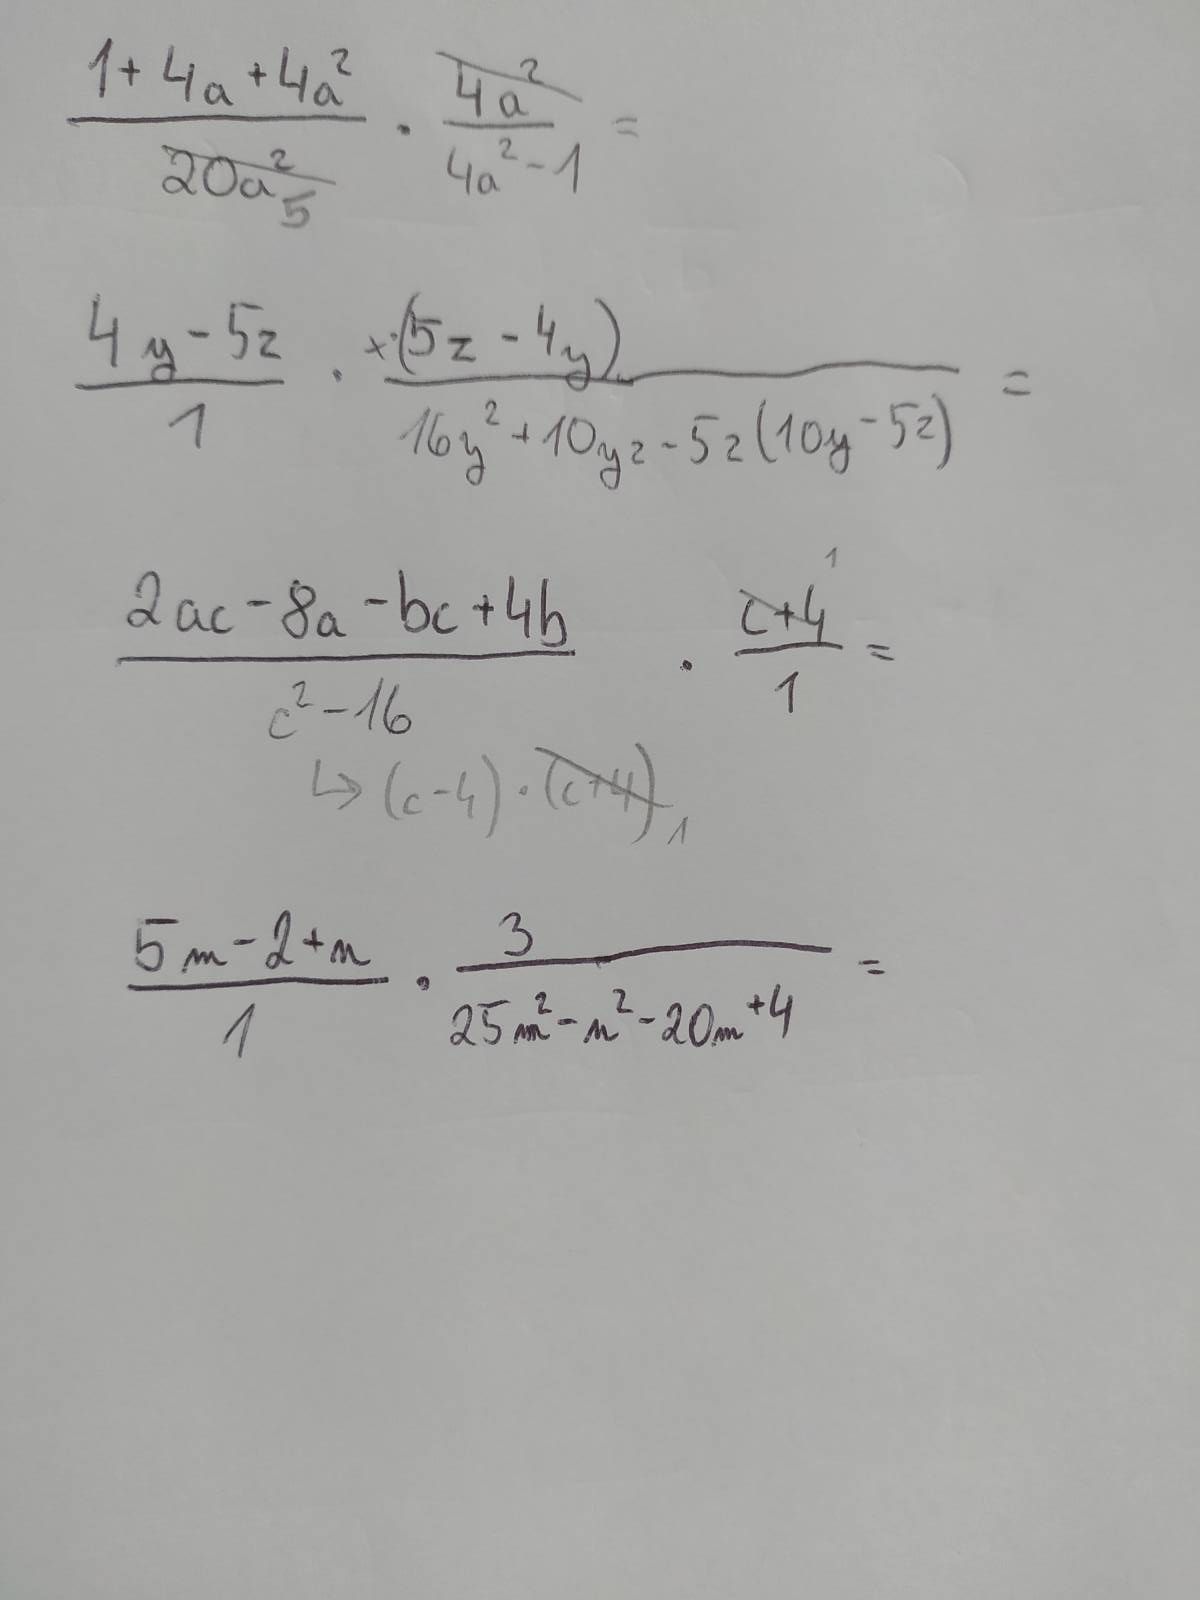 1 + 4a + 4a² / 20a² 5 · 4a² / 4a² - 1 =
4y - 5z / 1 · x·(5z - 4y) / 16y² + 10yz - 5z(10y - 5z) =
2ac - 8a - bc + 4b / c² - 16 · c+4 1 / 1 =
↳ (c-4)·(c+4) 1
5m - 2 + n / 1 · 3 / 25m² - n² - 20m + 4 =